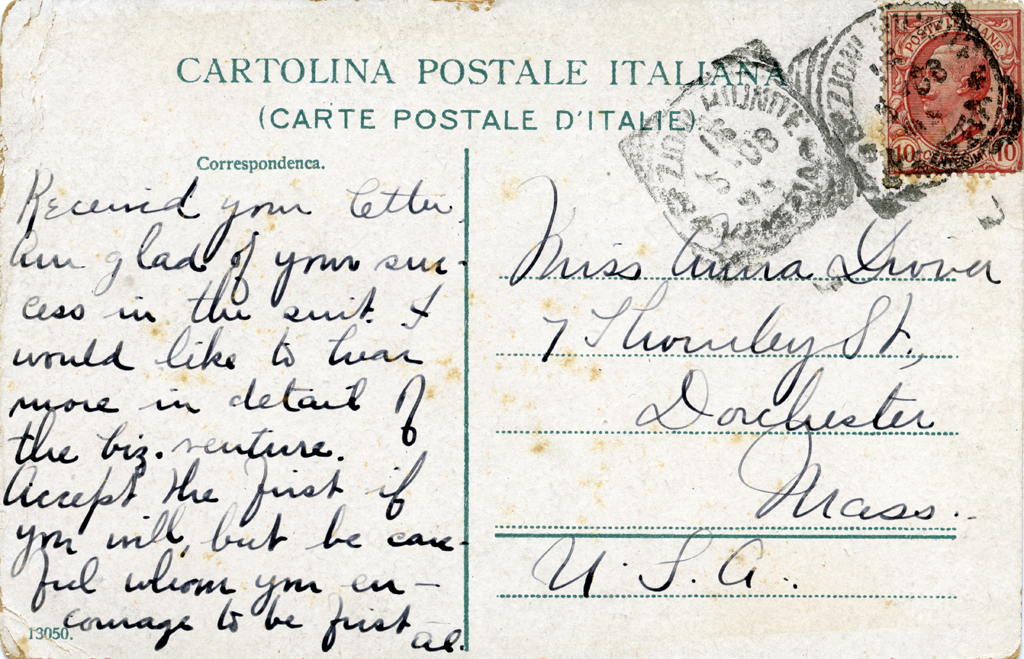 CARTOLINA POSTALE ITALIANA
(CARTE POSTALE D'ITALIE)
Correspondenca.
Received your letter.
Am glad of your suc-
cess in the suit. I
would like to hear
more in detail of
the biz. venture.
Accept the first if
you will, but be care-
ful whom you en-
courage to be first
al.
13050.
POSTE ITALIANE
10 CENTESIMI 10
08
Miss Anna Drover
7 Thornley St.,
Dorchester
Mass.
U.S.A.